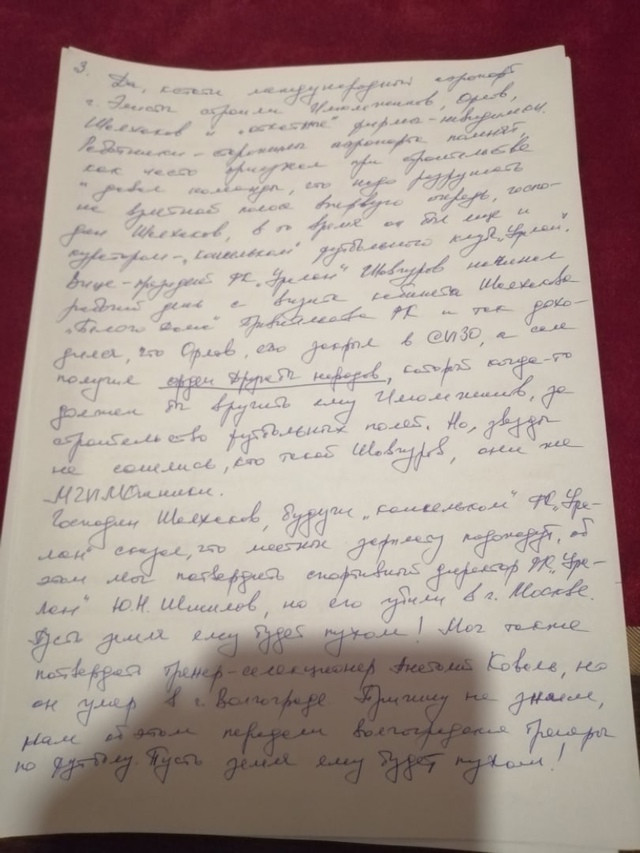 3. Да, кстати международный аэропорт
г. Элисты строили Илюмжинов, Орлов,
Шалхаков и "откатные" фирмы-невидимки.
Работники-старожилы аэропорта помнят,
как часто приезжал при строительстве
и давал команды, что надо разрушать
на взлетной полосе в первую очередь, госпо-
дин Шалхаков, в то время он был еще и
куратором-"кошельком" футбольного клуба "Уралан".
Вице-президент ФК "Уралан" Шовгуров начинал
рабочий день с визита кабинета Шалхакова
"Белого дома" Правительства РК и так дохо-
дился, что Орлов, его закрыл в СИЗО, а сам
получил орден Дружбы народов, который когда-то
должен был вручить ему Илюмжинов, за
строительство футбольных полей. Но, звезды
не сошлись, кто такой Шовгуров, они же
МГИМОшники.
Господин Шалхаков, будучи "кошельком" ФК "Ура-
лан" сказал, что местные зарплату подождут, об
этом мог подтвердить спортивный директор ФК "Ура-
лан" Ю.Н. Шишлов, но его убили в г. Москве.
Пусть земля ему будет пухом! Мог также
подтвердить тренер-селекционер Анатолий Коваль, но
он умер в г. Волгограде Причину не знаем,
нам об этом передали волгоградские тренеры
по футболу. Пусть земля ему будет пухом!